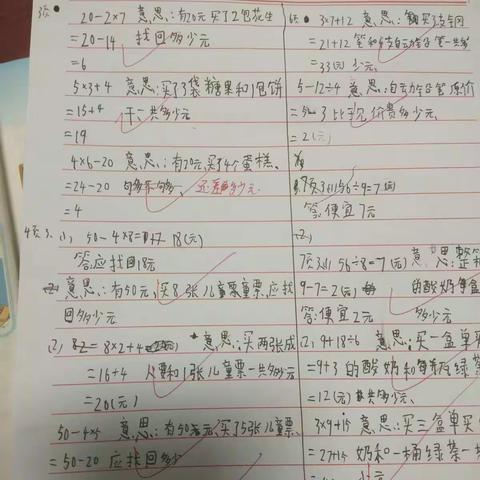 3页
20-2×7 意思:有20元买了2包花生
=20-14 找回多少元
=6
5×3+4 意思:买了3袋糖果和1包饼
=15+4 干,共多少元
=19
4×6-20 意思:有20元,买了4个蛋糕、
=24-20 够不够、还差多少元
=4
4页3. (1) 50-4×8= 18(元)
答:应找回18元
意思:有50元,买8张儿童票,应找
回多少元
(2) 8×2+4 意思:买两张成
=16+4 人票和1张儿童票一共多少元
=20(元)
50-4×5 意思:有50元,买了5张儿童票
=50-20 应找回多少
6页 3×7+12 意思:买3支钢
=21+12 笔和 自动铅笔一共多
=33(元) 少元
5-12÷4 意思:自动铅笔原价
=5-3 比 价贵多少元
=2(元)
7页3(1) 56÷9=7(元)
答:便宜7元
7页3(1) 56÷8=7(元) 意思:整箱
9-7=2(元) 的酸奶每盒
答:便宜2元 多少元
(2) 9+18÷6 意思:买一盒单买
=9+3 的酸奶和 绿茶
=12(元) 共多少元
3×9+15 意思:买三盒单买
=27+15 奶和一桶绿茶一共
少元